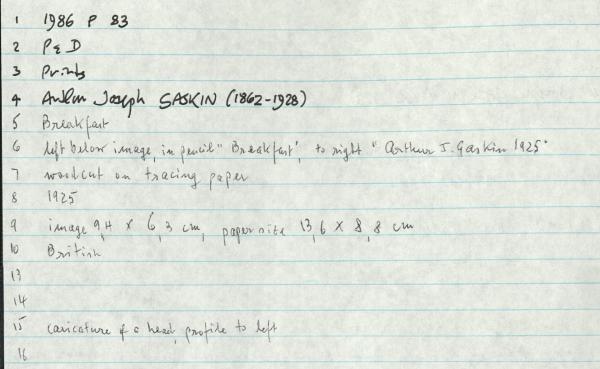 1 1986 P 83
2 P & D
3 Prints
4 Arthur Joseph GASKIN (1862-1928)
5 Breakfast
6 left below image, in pencil "Breakfast", to right "Arthur J. Gaskin 1925"
7 woodcut on tracing paper
8 1925
9 image 9,4 x 6,3 cm, paper size 13,6 x 8,8 cm
10 British
13
14
15 caricature of a head, profile to left
16